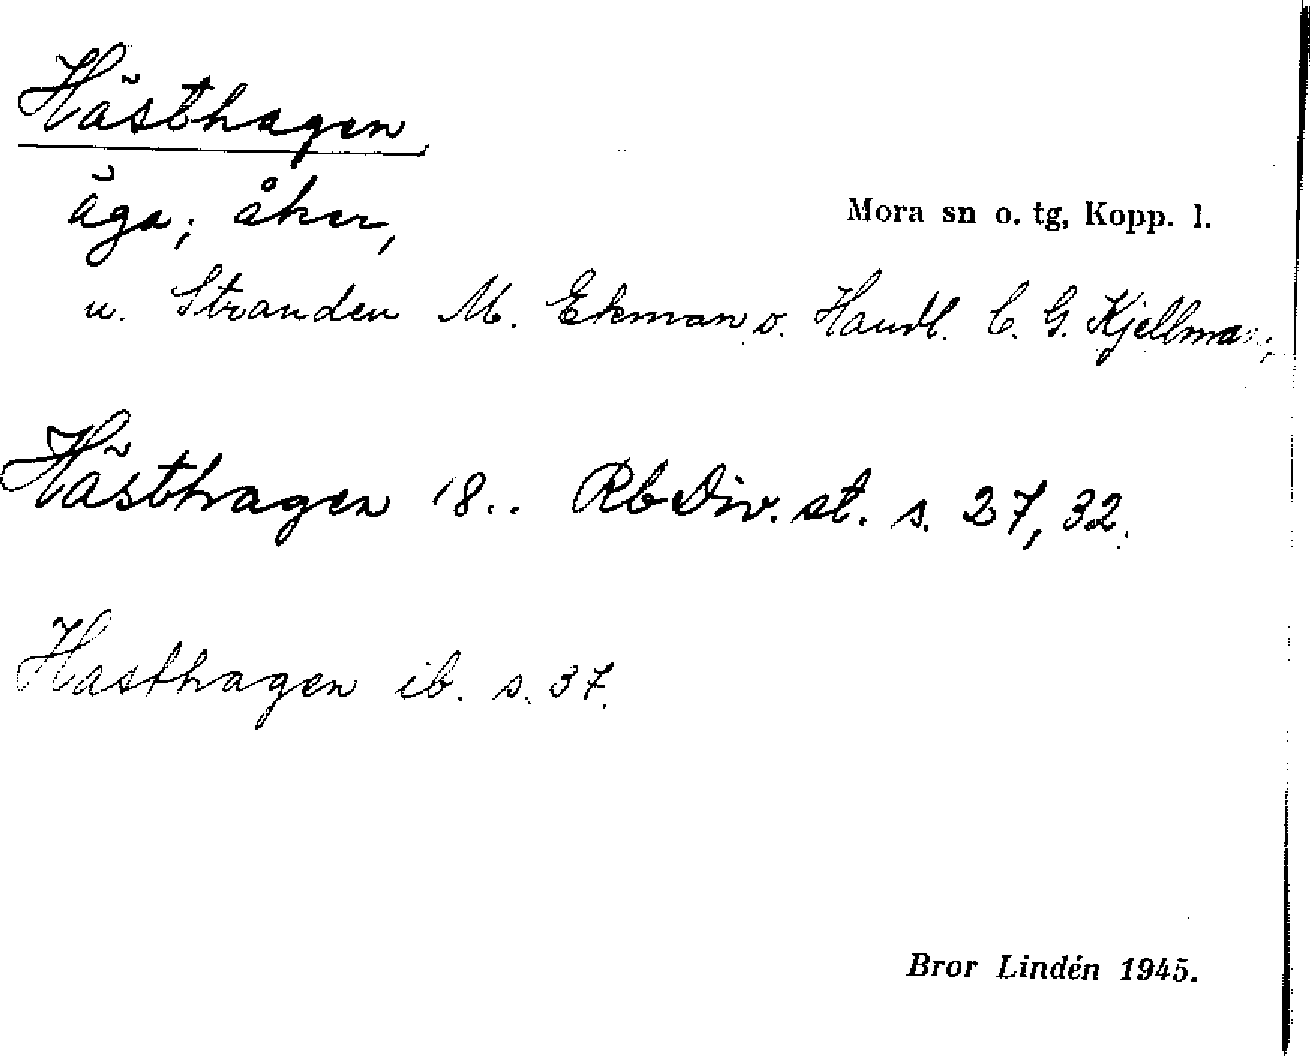 Hästhagen
äga; åker,
Mora sn o. tg, Kopp. l.
u. Stranden M. Ekman o. Handl. C. G. Kjellman;
Hästhagen 18.. RbDiv. st. s. 27, 32.
Hasthagen ib. s. 37.
Bror Lindén 1945.